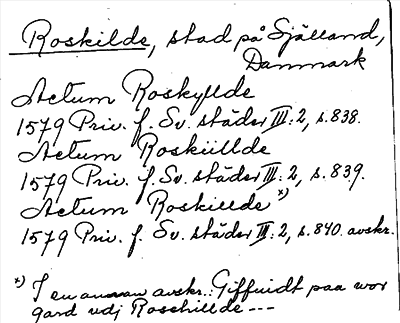 Roskilde, stad på Själland,
Danmark
Actum Roskyllde
1579 Priv. f. Sv. städer III:2, s. 838.
Actum Roskiillde
1579 Priv. f. Sv. städer III:2, s. 839.
Actum Roskillde *)
1579 Priv. f. Sv. städer III:2, s. 840. avskr.
*) I en annan avskr.: Giffuidt paa wor
gard udj Roschillde ---